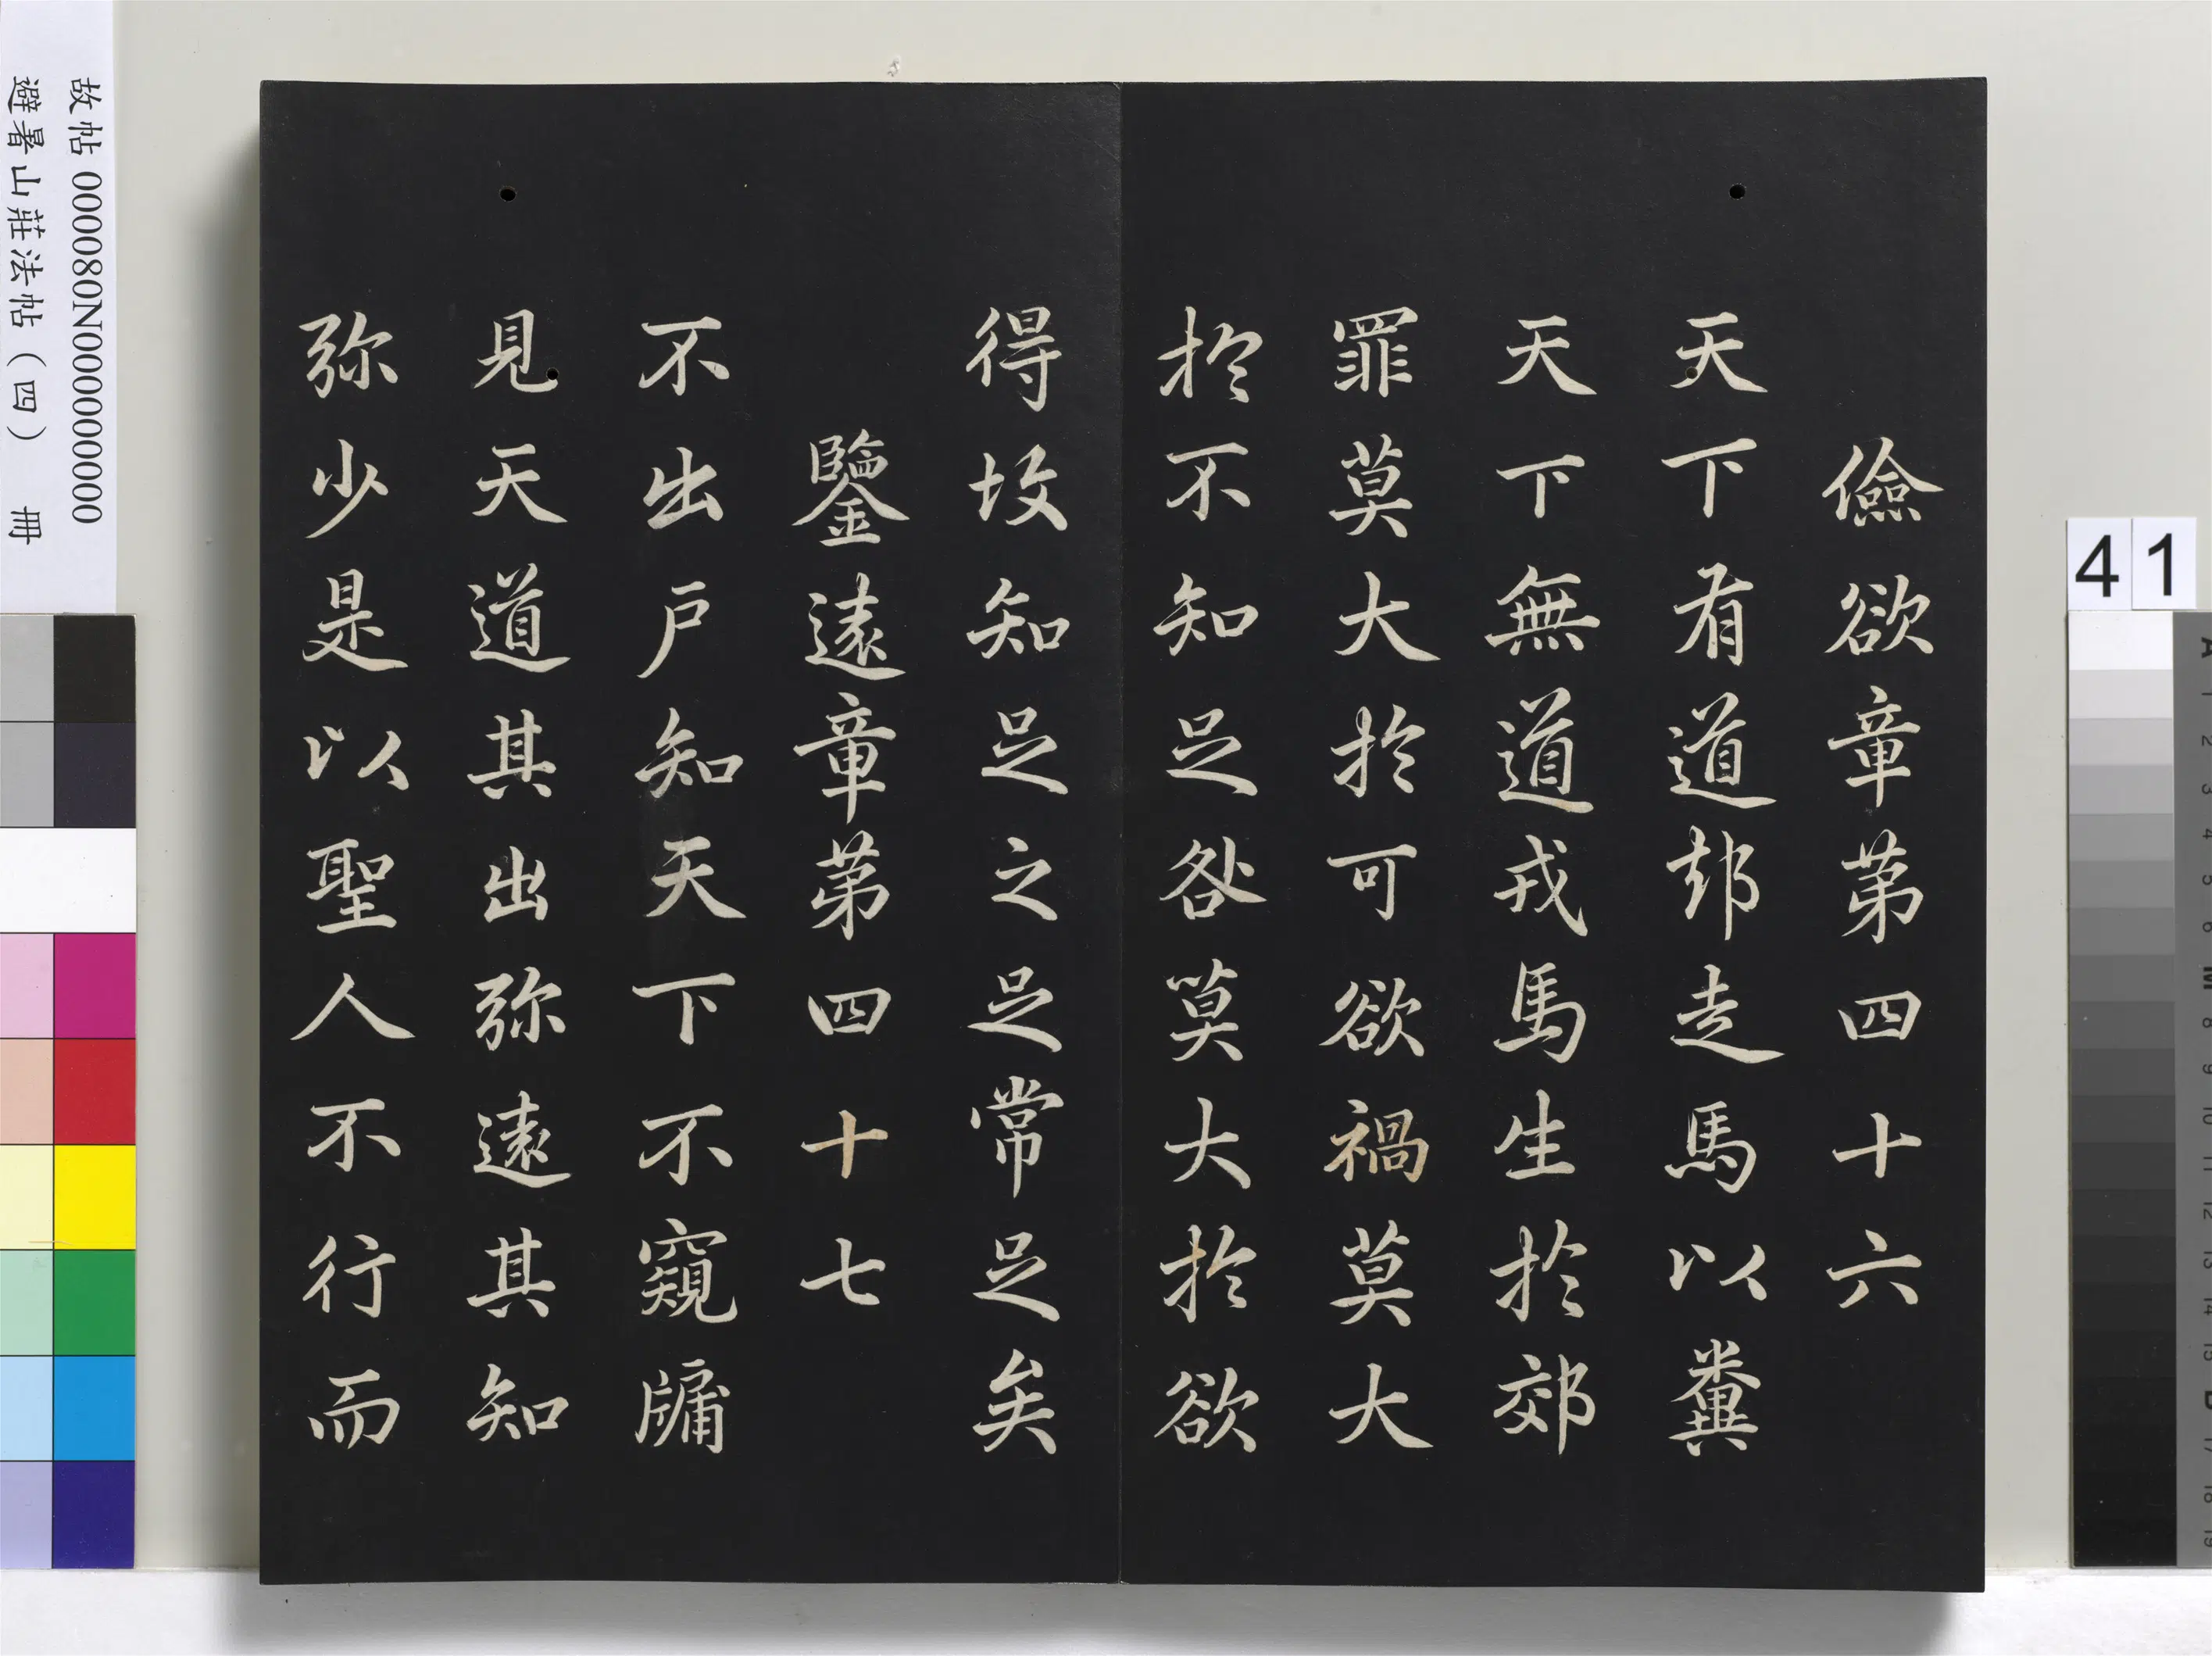 儉欲章第四十六
天下有道却走馬以糞
天下無道戎馬生於郊
罪莫大於可欲禍莫大
於不知足咎莫大於欲
得故知足之足常足矣
鑒遠章第四十七
不出戶知天下不窺牖
見天道其出弥遠其知
弥少是以聖人不行而
故帖 000080N000000000
避暑山莊法帖(四) 冊
41